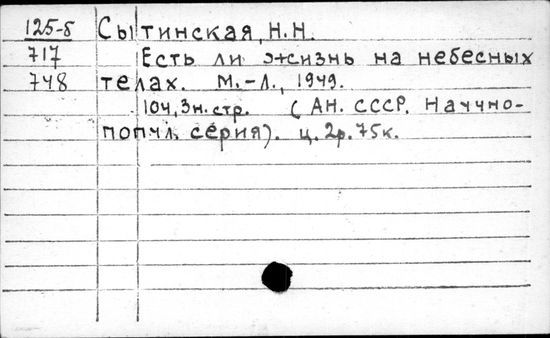 125-5 Сытинская, Н.Н.
717 Есть ли жизнь на небесных
748 телах. М.-Л., 1949.
104, 3н. стр. (АН. СССР. Научно-
попул. серия). ц. 2р. 75к.